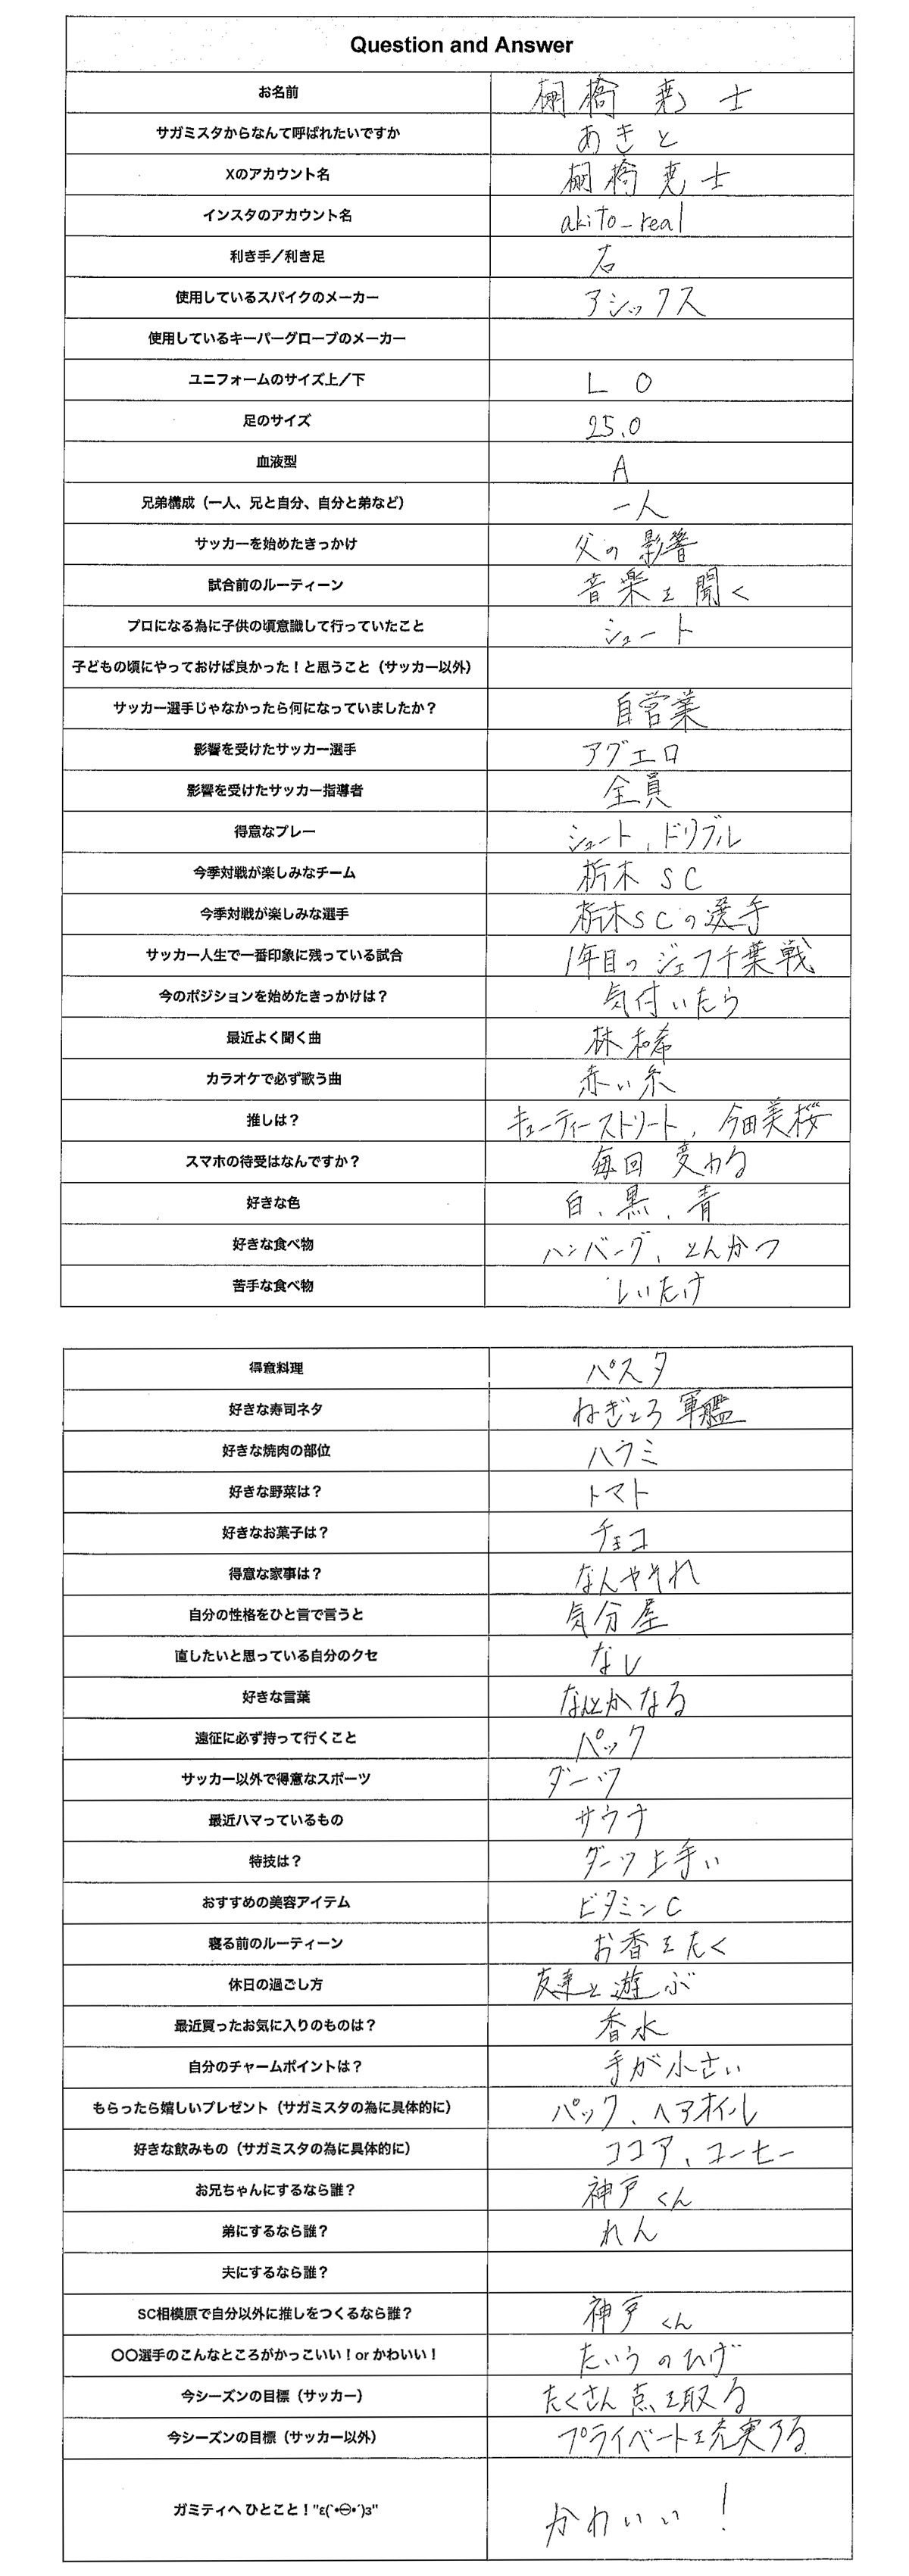 Question and Answer
お名前 棚橋 尭士
サガミスタからなんて呼ばれたいですか あきと
Xのアカウント名 棚橋 尭士
インスタのアカウント名 akito_real
利き手／利き足 右
使用しているスパイクのメーカー アシックス
使用しているキーパーグローブのメーカー
ユニフォームのサイズ上／下 L O
足のサイズ 25.0
血液型 A
兄弟構成（一人、兄と自分、自分と弟など） 一人
サッカーを始めたきっかけ 父の影響
試合前のルーティーン 音楽を聞く
プロになる為に子供の頃意識して行っていたこと シュート
子どもの頃にやっておけば良かった！と思うこと（サッカー以外）
サッカー選手じゃなかったら何になっていましたか？ 自営業
影響を受けたサッカー選手 アグエロ
影響を受けたサッカー指導者 全員
得意なプレー シュート、ドリブル
今季対戦が楽しみなチーム 栃木SC
今季対戦が楽しみな選手 栃木SCの選手
サッカー人生で一番印象に残っている試合 1年目のジェフ千葉戦
今のポジションを始めたきっかけは？ 気付いたら
最近よく聞く曲 林和希
カラオケで必ず歌う曲 赤い糸
推しは？ キューティーストリート、今田美桜
スマホの待受はなんですか？ 毎回変わる
好きな色 白、黒、青
好きな食べ物 ハンバーグ、とんかつ
苦手な食べ物 しいたけ
得意料理 パスタ
好きな寿司ネタ ねぎとろ軍艦
好きな焼肉の部位 ハラミ
好きな野菜は？ トマト
好きなお菓子は？ チョコ
得意な家事は？ なんやそれ
自分の性格をひと言で言うと 気分屋
直したいと思っている自分のクセ なし
好きな言葉 なんとかなる
遠征に必ず持って行くこと パック
サッカー以外で得意なスポーツ ダーツ
最近ハマっているもの サウナ
特技は？ ダーツ上手い
おすすめの美容アイテム ビタミンC
寝る前のルーティーン お香をたく
休日の過ごし方 友達と遊ぶ
最近買ったお気に入りのものは？ 香水
自分のチャームポイントは？ 手が小さい
もらったら嬉しいプレゼント（サガミスタの為に具体的に） パック、ヘアオイル
好きな飲みもの（サガミスタの為に具体的に） ココア、コーヒー
お兄ちゃんにするなら誰？ 神戸くん
弟にするなら誰？ れん
夫にするなら誰？
SC相模原で自分以外に推しをつくるなら誰？ 神戸くん
〇〇選手のこんなところがかっこいい！or かわいい！ たいうのひげ
今シーズンの目標（サッカー） たくさん点を取る
今シーズンの目標（サッカー以外） プライベートを充実する
ガミティへ ひとこと！"ε(´•㉨•`)з" かわいい！